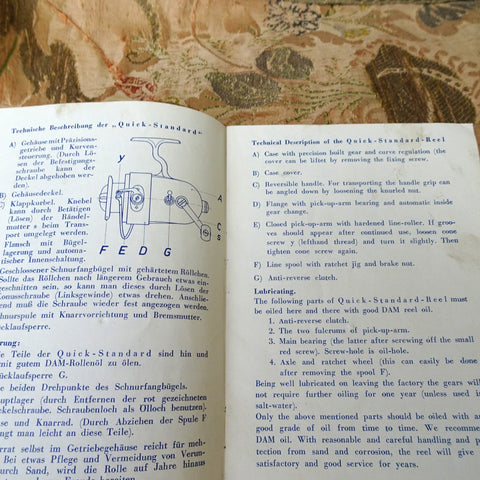 Technische Beschreibung der „Quick-Standard"
A) Gehäuse mit Präzisions-
getriebe und Kurven-
steuerung. (Durch Lö-
sen der Befestigungs-
schraube kann der
Deckel abgehoben wer-
den).
B) Gehäusedeckel.
C) Klappkurbel. Knebel
kann durch Betätigen
(Lösen) der Rändel-
mutter s beim Trans-
port umgelegt werden.
Flansch mit Bügel-
lagerung und automa-
tischer Innenschaltung.
Geschlossener Schnurfangbügel mit gehärtetem Röllchen.
Sollte das Röllchen nach längerem Gebrauch etwas ein-
geschnitten sein, so kann man dieses durch Lösen der
Konusschraube (Linksgewinde) etwas drehen. Anschlie-
end muß die Schraube wieder fest angezogen werden.
chnurspule mit Knarrvorrichtung und Bremsmutter.
cklaufsperre.
rung:
e Teile der Quick-Standard sind hin und
mit gutem DAM-Rollenöl zu ölen.
ücklaufsperre G.
e beiden Drehpunkte des Schnurfangbügels.
uptlager (durch Entfernen der rot gezeichneten
ckelschraube. Schraubenloch als Ölloch benutzen).
se und Knarrad. (Durch Abziehen der Spule F
ngt man leicht an diese Teile).
rrat selbst im Getriebegehäuse reicht für meh-
Bei etwas Pflege und Vermeidung von Verun-
durch Sand, wird die Rolle auf Jahre hinaus
y
A
C
s
F E D G
Technical Description of the Quick-Standard-Reel
A) Case with precision built gear and curve regulation (the
cover can be liftet by removing the fixing screw.
B) Case cover.
C) Reversible handle. For transporting the handle grip can
be angled down by loosening the knurled nut.
D) Flange with pick-up-arm bearing and automatic inside
gear change.
E) Closed pick-up-arm with hardened line-roller. If groo-
ves should appear after continued use, loosen cone
screw y (lefthand thread) and turn it slightly. Then
tighten cone screw again.
F) Line spool with ratchet jig and brake nut.
G) Anti-reverse clutch.
Lubricating.
The following parts of Quick-Standard-Reel must
be oiled here and there with good DAM reel oil.
1. Anti-reverse clutch.
2. The two fulcrums of pick-up-arm.
3. Main bearing (the latter after screwing off the small
red screw). Screw-hole is oil-hole.
4. Axle and ratchet wheel (this can easily be done
after removing the spool F).
Being well lubricated on leaving the factory the gears will
not require further oiling for one year (unless used in
salt-water).
Only the above mentioned parts should be oiled with a
good grade of oil from time to time. We recomme
DAM oil. With reasonable and careful handling and p
tection from sand and corrosion, the reel will give
satisfactory and good service for years.